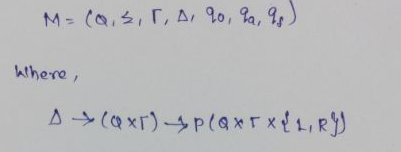 M = (Q, Σ, Γ, Δ, q0, qa, qs)
Where,
Δ → (Q×Γ) → P(Q×Γ×{L, R})